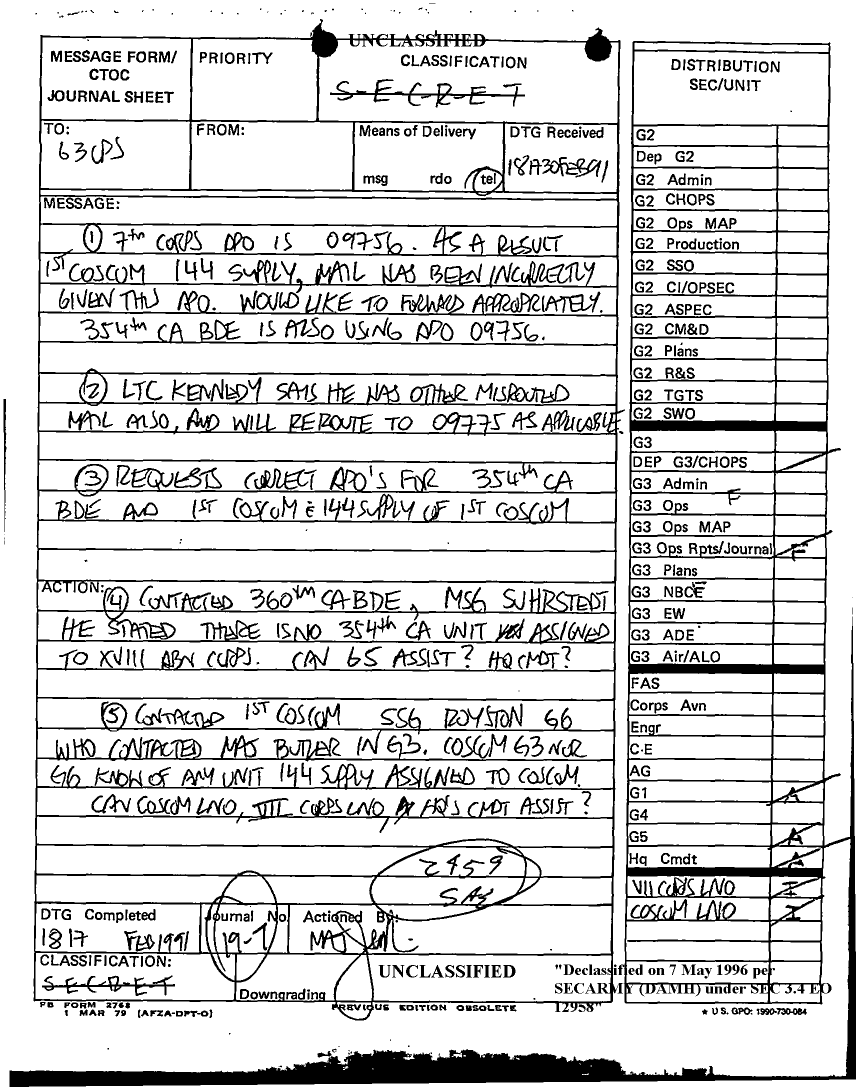 UNCLASSIFIED
MESSAGE FORM/
CTOC
JOURNAL SHEET
PRIORITY
CLASSIFICATION
S-E-C-R-E-T
TO:
63CPS
FROM:
Means of Delivery
msg rdo tel
DTG Received
MESSAGE:
① 7th CORPS APO IS 09756. AS A RESULT
1ST COSCOM 144 SUPPLY, MAIL HAS BEEN INCORRECTLY
GIVEN THIS APO. WOULD LIKE TO FORWARD APPROPRIATELY.
354th CA BDE IS ALSO USING APO 09756.
② LTC KENNEDY SAYS HE HAS OTHER MISROUTED
MAIL ALSO, AND WILL REROUTE TO 09775 AS APPLICABLE.
③ REQUESTS CORRECT APO'S FOR 354th CA
BDE AND 1ST COSCOM & 144 SUPPLY OF 1ST COSCOM
ACTION:
④ CONTACTED 360TH CA BDE, MSG SUHRSTEDT
HE STATED THERE IS NO 354th CA UNIT ASSIGNED
TO XVIII ABN CORPS. CAN G5 ASSIST? HQ CMDT?
⑤ CONTACTED 1ST COSCOM SSG ROYSTON G6
WHO CONTACTED MAJ BUTLER IN G3. COSCOM G3 NOR
G6 KNOW OF ANY UNIT 144 SUPPLY ASSIGNED TO COSCOM.
CAN COSCOM LNO, VII CORPS LNO, HQ'S CMDT ASSIST?
2459
DTG Completed
1817 FEB 1991
Journal No
19-7
Actioned By:
MAJ
CLASSIFICATION:
S-E-C-R-E-T
Downgrading
UNCLASSIFIED
"Declassified on 7 May 1996 per
SECARMY (DAMH) under SEC 3.4 EO
12958"
FB FORM 2768
1 MAR 79 (AFZA-DPT-O)
PREVIOUS EDITION OBSOLETE
★ U S. GPO: 1990-730-084
DISTRIBUTION
SEC/UNIT
G2
Dep G2
G2 Admin
G2 CHOPS
G2 Ops MAP
G2 Production
G2 SSO
G2 CI/OPSEC
G2 ASPEC
G2 CM&D
G2 Plans
G2 R&S
G2 TGTS
G2 SWO
G3
DEP G3/CHOPS
G3 Admin
G3 Ops F
G3 Ops MAP
G3 Ops Rpts/Journal F
G3 Plans
G3 NBCE
G3 EW
G3 ADE
G3 Air/ALO
FAS
Corps Avn
Engr
C-E
AG
G1 A
G4
G5 A
Hq Cmdt A
VII CORPS LNO I
COSCOM LNO I